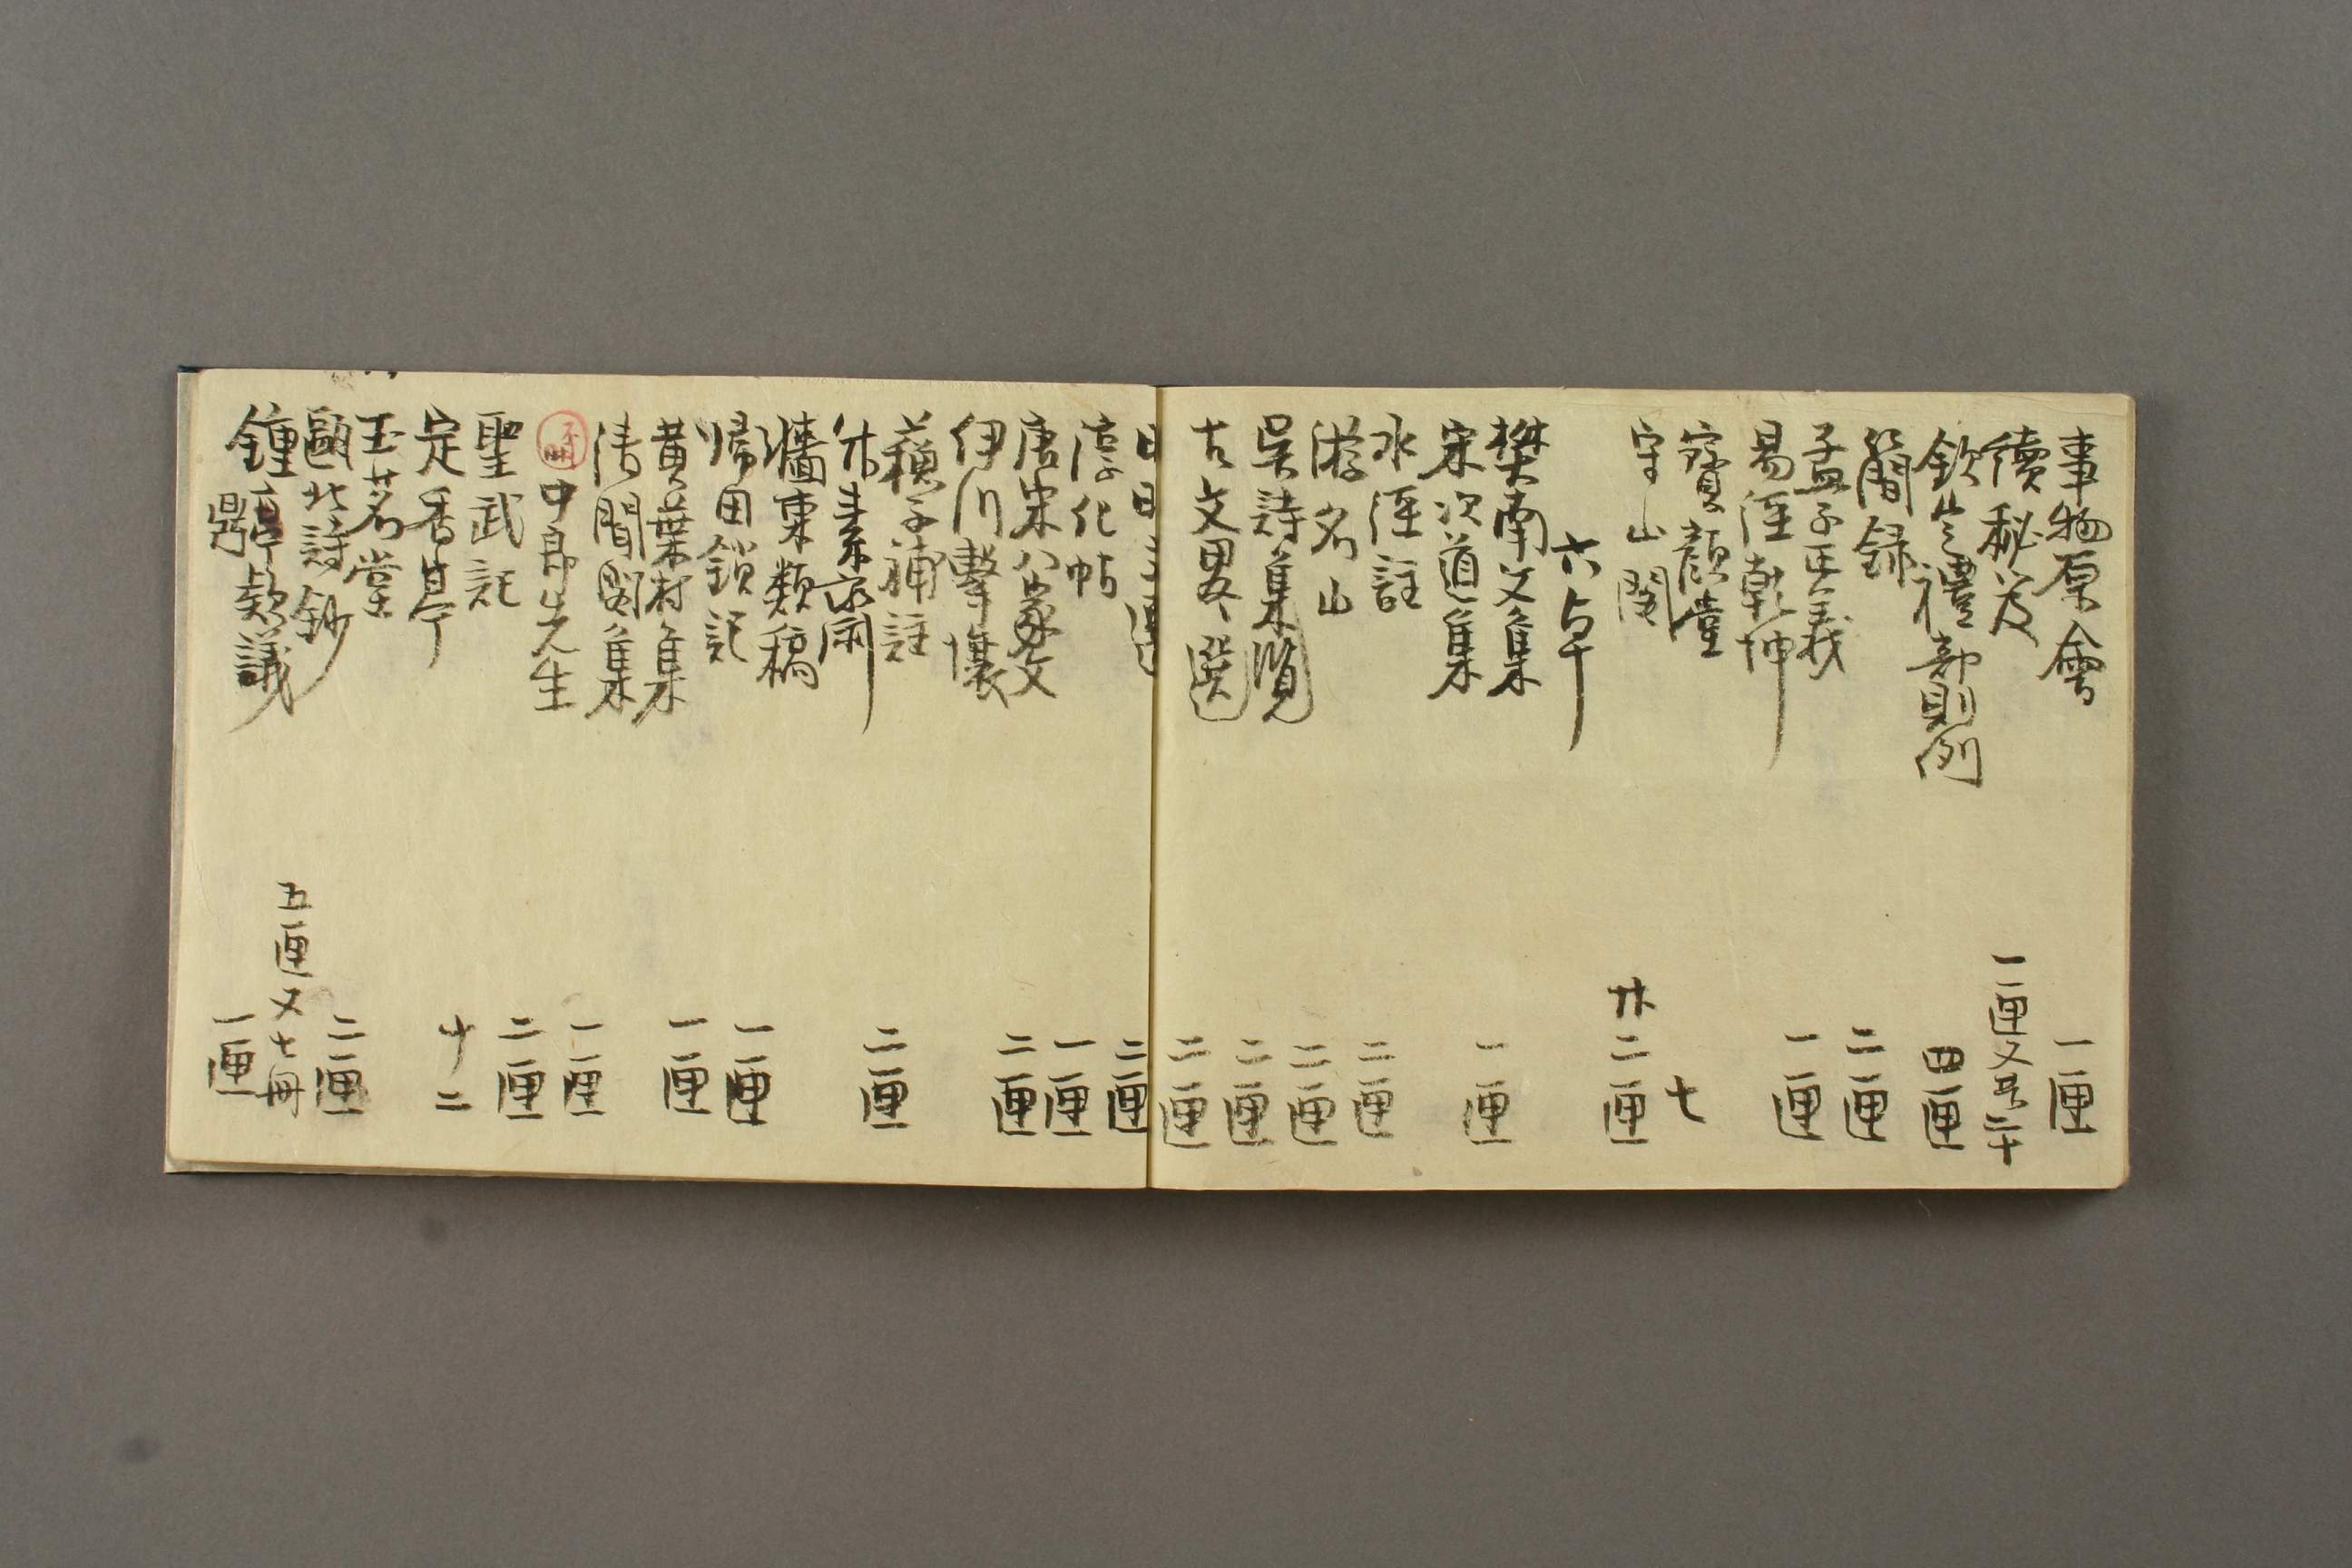 事物原會 一匣
續秘笈 一匣又 二十
欽定禮部則例 四匣
簡録 二匣
孟子正義 一匣
易涇乾坤
寶顔堂 七
守山閣 廿二匣
六与卓
樊南文集 一匣
宋次道集
水涇註 二匣
游名山 二匣
吴詩集覧 二匣
古文畧選 二匣
二匣
淳化帖 一匣
唐宋八家文 二匣
伊川擊壤
蘓子補註 二匣
牆東類稿
歸田鎖記 一匣
黄葉村集 一匣
清閟閣集
中郎先生 一匣
聖武記 二匣
定香亭 十二
玉茗堂 二匣
甌北詩鈔 五匣又七冊
鐘鼎款議 一匣